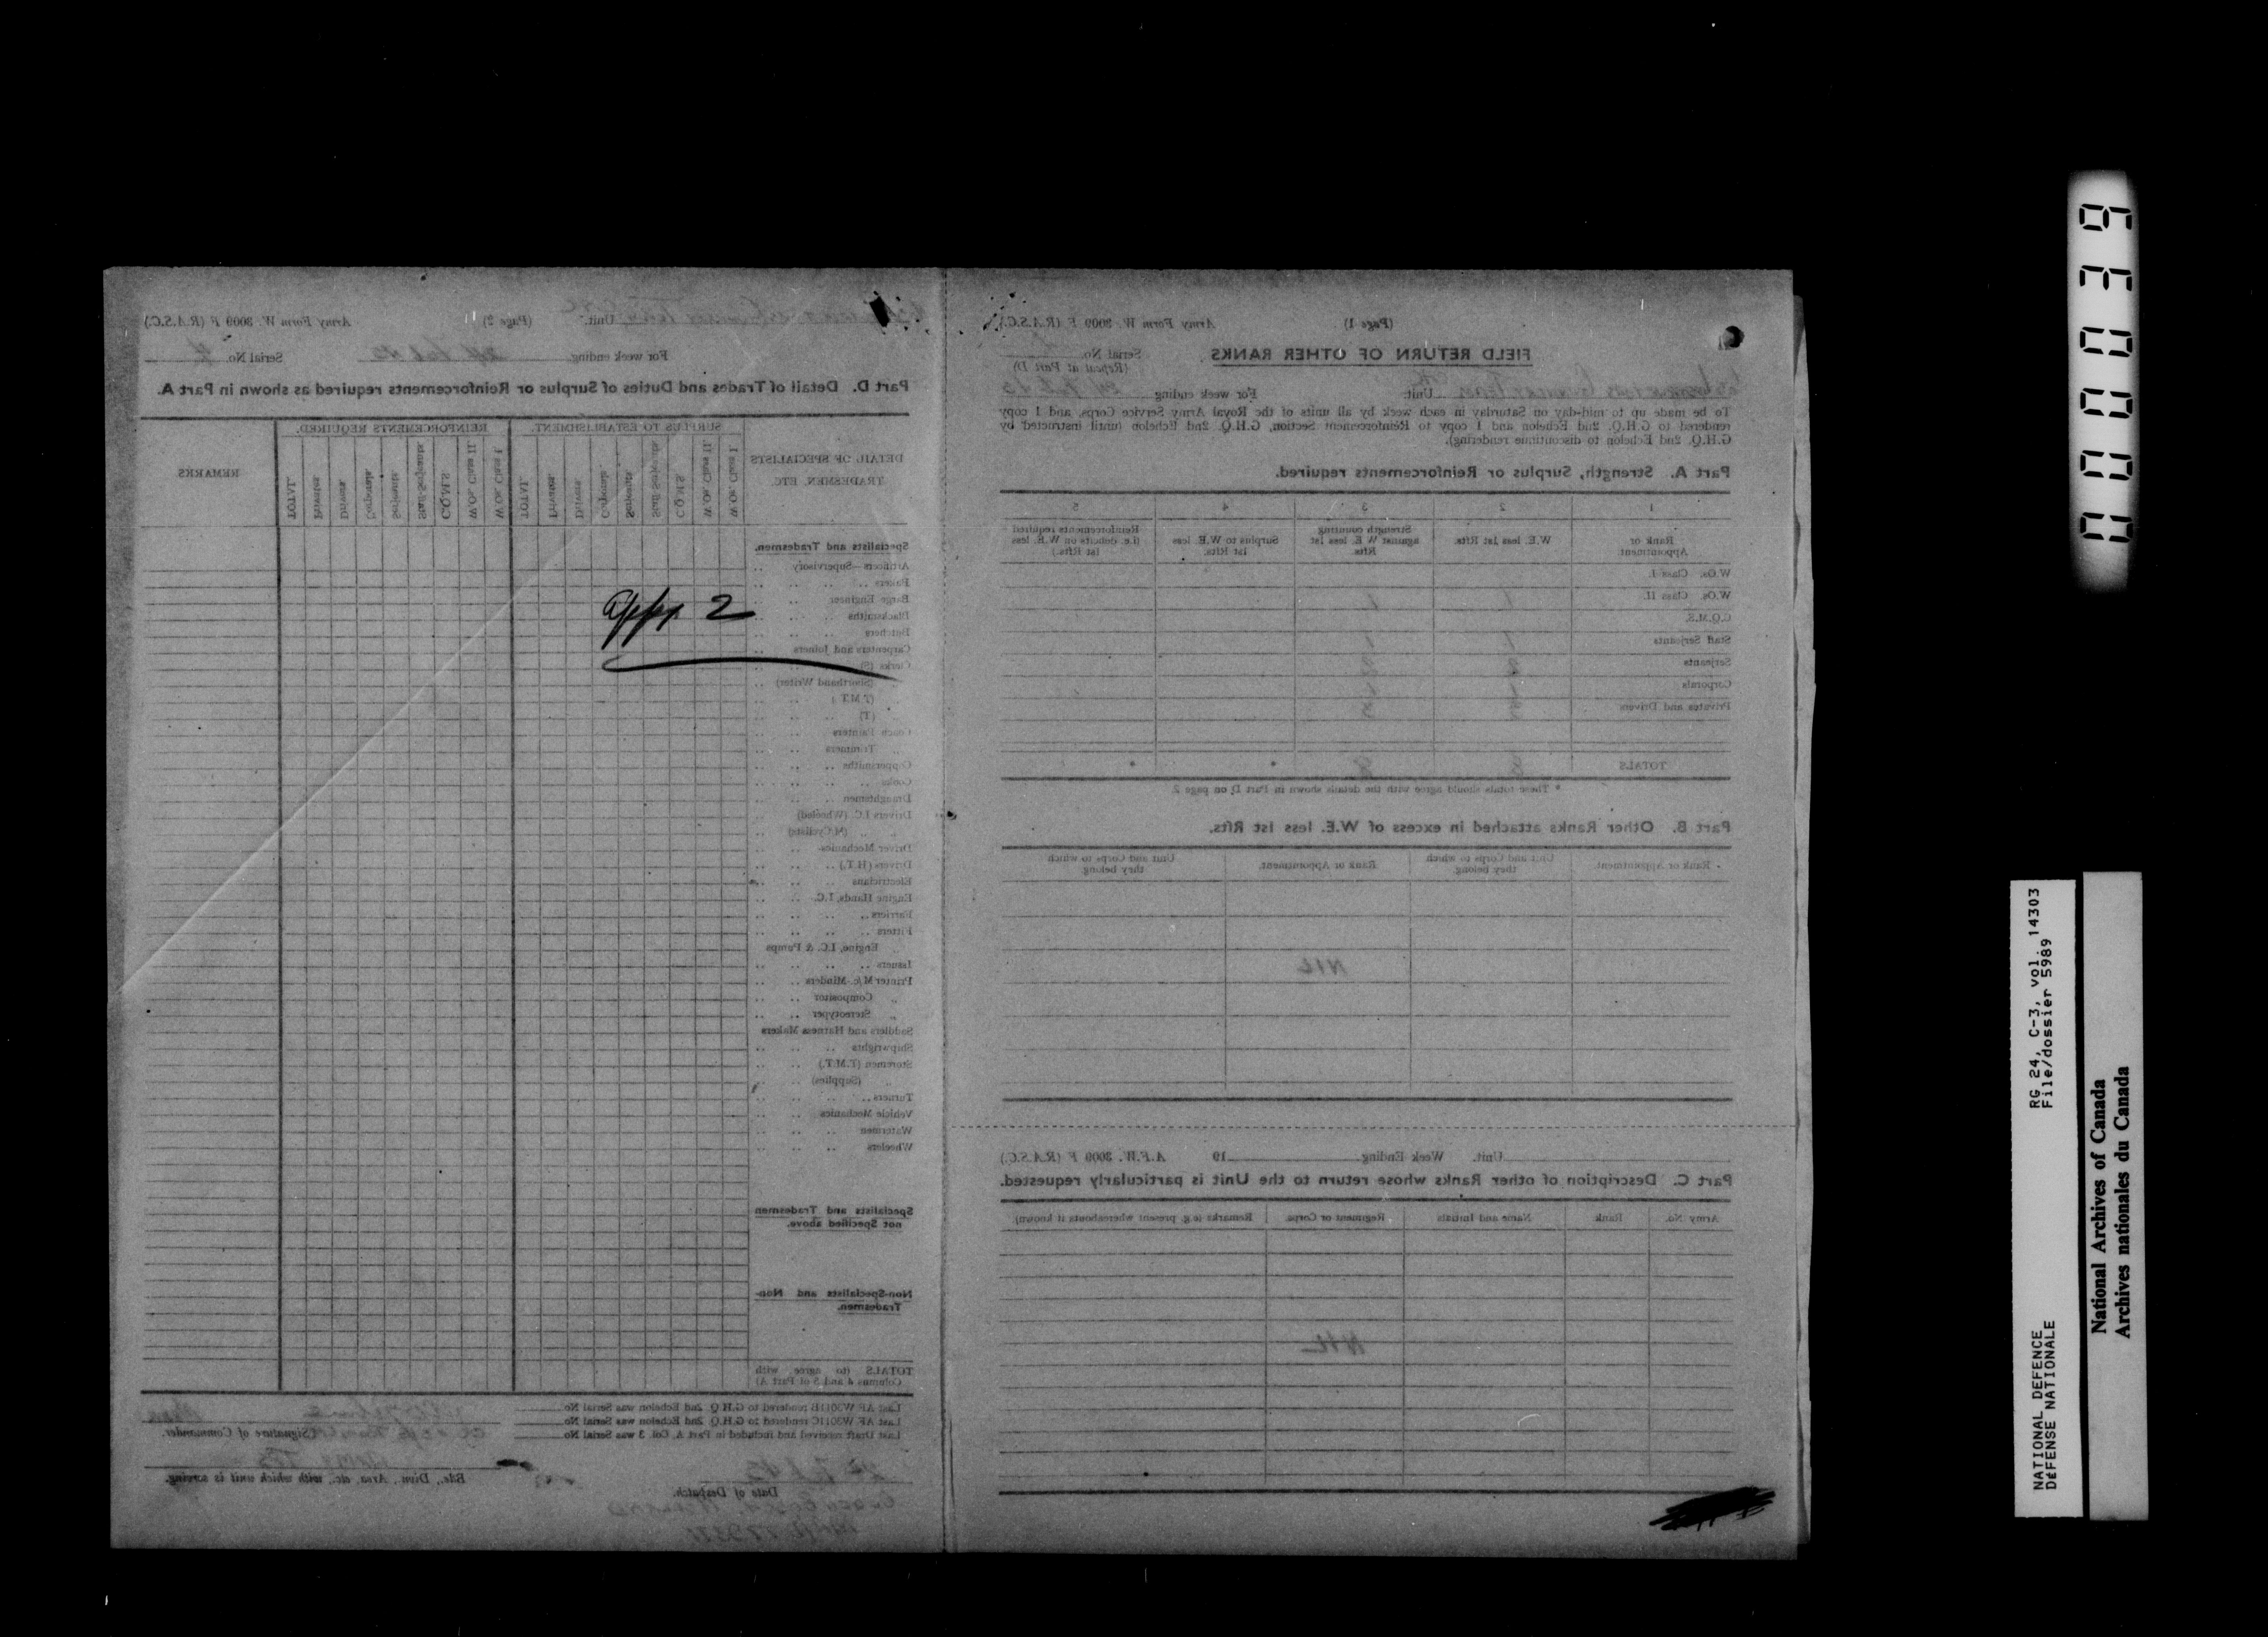 (Page 2) Army Form W. 3009 F (R.A.S.C.)
Unit.
For week ending
Serial No.
Part D. Detail of Trades and Duties of Surplus or Reinforcements required as shown in Part A.
DETAIL OF SPECIALISTS TRADESMEN, ETC.
SURPLUS TO ESTABLISHMENT.
REINFORCEMENTS REQUIRED.
REMARKS
W.Os. Class I.
W.Os. Class II.
C.Q.M.S.
Staff Serjeants.
Serjeants.
Corporals.
Drivers.
Privates.
TOTAL.
W.Os. Class I.
W.Os. Class II.
C.Q.M.S.
Staff-Serjeants.
Serjeants.
Corporals.
Drivers.
Privates.
TOTAL.
Specialists and Tradesmen.
Artificers—Supervisory
Bakers
Barge Engineer
Blacksmiths
Butchers
Carpenters and Joiners
Clerks (S)
(Shorthand Writer)
(T.M.T.)
(T)
Coach Painters
„ Trimmers
Coppersmiths
Cooks
Draughtsmen
Drivers I.C. (Wheeled)
„ (M/Cyclists)
Driver Mechanics
Drivers (H.T.)
Electricians
Engine Hands, I.C.
Farriers
Fitters
Engine, I.C. & Pumps
Issuers
Printer M/c Minders
„ Compositor
„ Stereotyper
Saddlers and Harness Makers
Shipwrights
Storemen (T.M.T.)
„ (Supplies)
Turners
Vehicle Mechanics
Watermen
Wheelers
Specialists and Tradesmen
not Specified above.
Non-Specialists and Non-
Tradesmen.
TOTALS (to agree with
Columns 4 and 5 of Part A)
Last AF W3011B rendered to G.H.Q. 2nd Echelon was Serial No
Last AF W3011C rendered to G.H.Q. 2nd Echelon was Serial No
Last Draft received and included in Part A, Col. 3 was Serial No
Signature of Commander.
Bde., Divn., Area, etc., with which unit is serving.
Date of Despatch.
App 2
(Page 1) Army Form W. 3009 F (R.A.S.C.)
FIELD RETURN OF OTHER RANKS
Serial No.
(Repeat at Part D)
Unit.
For week ending
To be made up to mid-day on Saturday in each week by all units of the Royal Army Service Corps, and 1 copy
rendered to G.H.Q. 2nd Echelon and 1 copy to Reinforcement Section, G.H.Q. 2nd Echelon (until instructed by
G.H.Q. 2nd Echelon to discontinue rendering).
Part A. Strength, Surplus or Reinforcements required.
1 2 3 4 5
Rank or Appointment
W.E. less 1st Rfts.
Strength counting against W.E. less 1st Rfts.
Surplus to W.E. less 1st Rfts.
Reinforcements required (i.e. deficits on W.E. less 1st Rfts.)
W.Os. Class I.
W.Os. Class II. 1 1
C.Q.M.S.
Staff Serjeants 1 1
Serjeants
Corporals
Privates and Drivers
TOTALS
* These totals should agree with the details shown in Part D, on page 2.
Part B. Other Ranks attached in excess of W.E. less 1st Rfts.
Rank or Appointment.
Unit and Corps to which they belong
Rank or Appointment.
Unit and Corps to which they belong
NIL
Unit. Week Ending 19 A.F.W. 3009 F (R.A.S.C.)
Part C. Description of other Ranks whose return to the Unit is particularly requested.
Army No. Rank Name and Initials Regiment or Corps. Remarks (e.g. present whereabouts if known).
NIL
000039
RG 24, C-3, vol. 14303
File/dossier 5989
NATIONAL DEFENCE
DÉFENSE NATIONALE
National Archives of Canada
Archives nationales du Canada